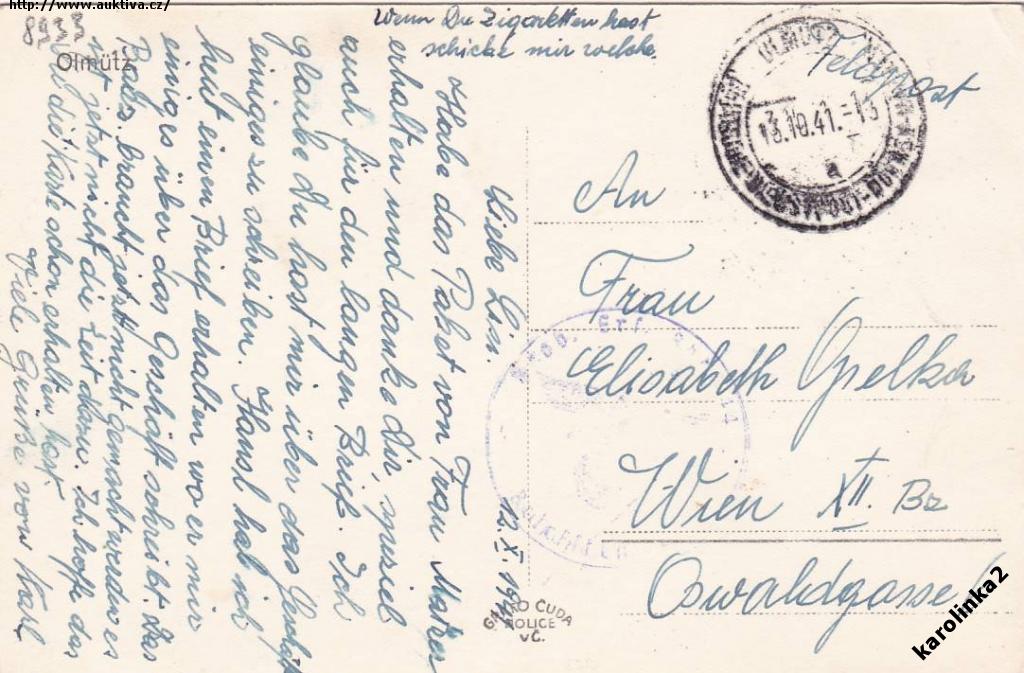 http://www.auktiva.cz/
8933
Olmütz
Wenn Du Zigaretten hast
schicke mir welche.
Feldpost
OLMÜTZ
13.10.41.-13
a
12.X.194
Liebe Lisl.
Habe das Paket von Frau
erhalten und danke dir,
auch für den langen Brief. Ich
glaube du hast mir über das Geschäft
einiges zu schreiben. Hansl hab ich
heut einen Brief erhalten wo er mir
einiges über das Geschäft schreibt. Das
braucht jetzt nicht gemacht werden es
ist jetzt nicht die Zeit dazu. Ich hoffe das
du die Karte schon erhalten hast.
Viele Grüße von Karl
An
Frau
Elisabeth Opelka
Wien XII. Bz
Oswaldgasse
CUDA
HOLICE
VČ.
karolinka2